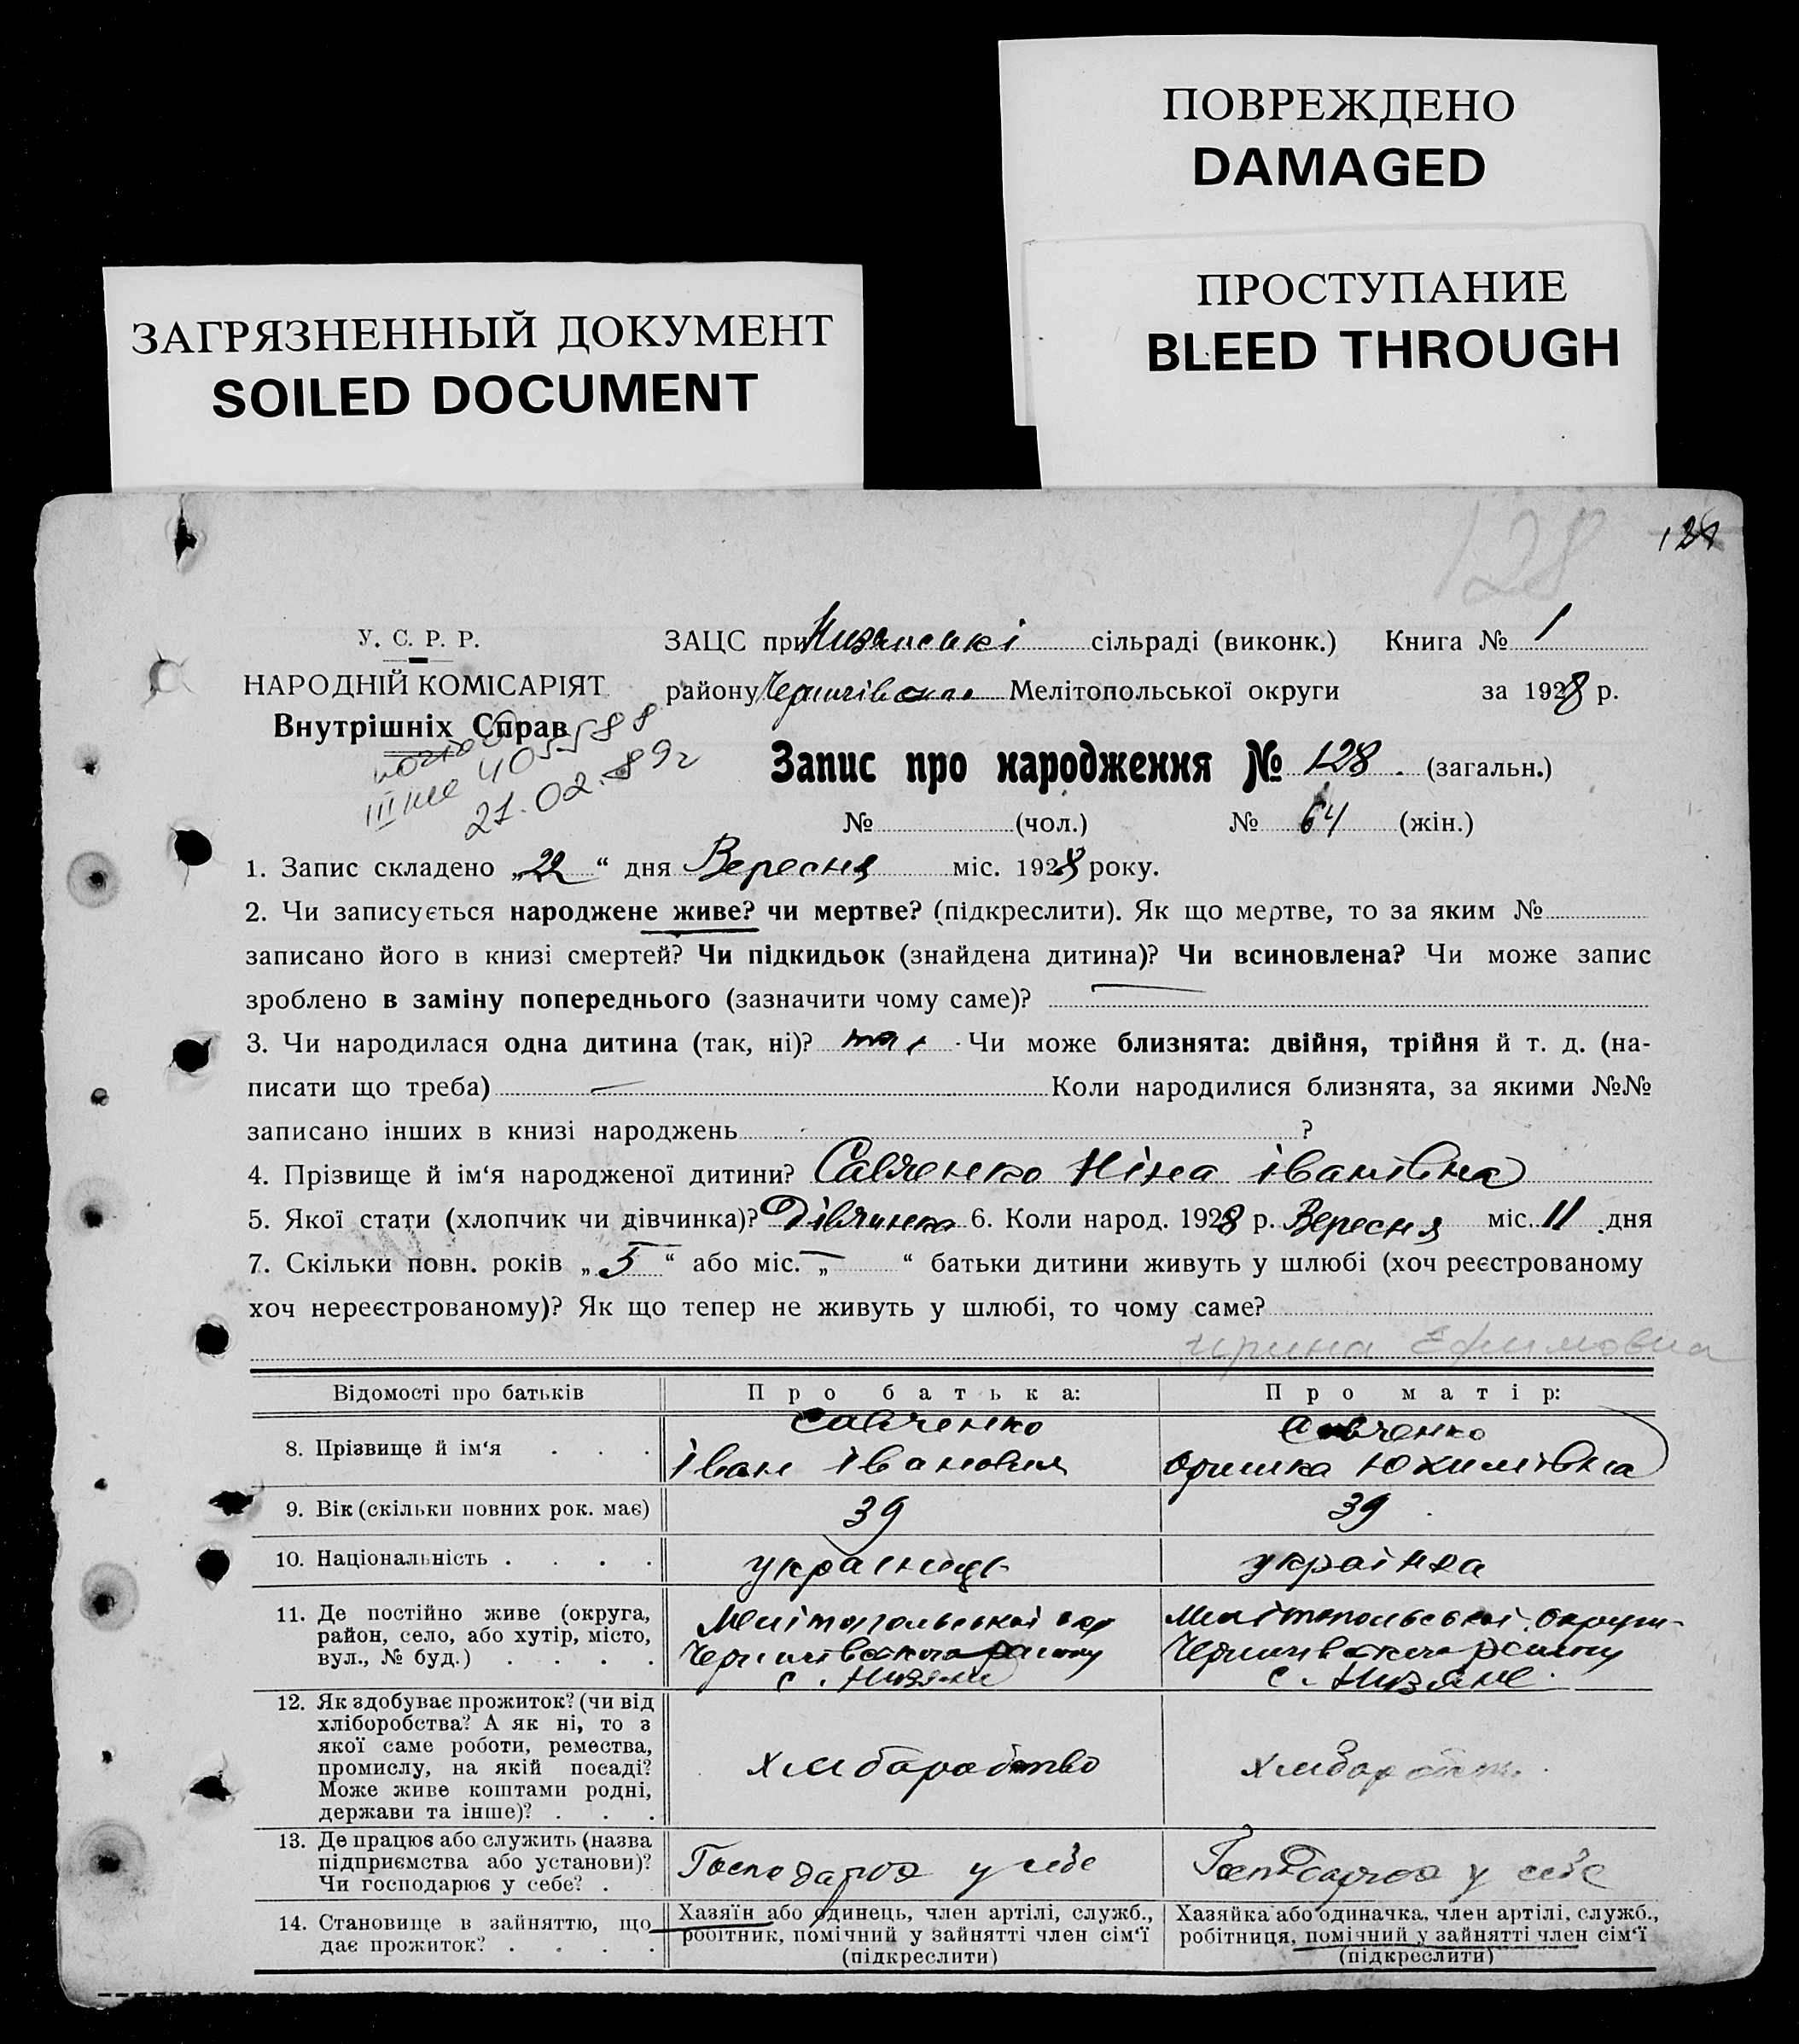 ПОВРЕЖДЕНО
DAMAGED
ПРОСТУПАНИЕ
BLEED THROUGH
ЗАГРЯЗНЕННЫЙ ДОКУМЕНТ
SOILED DOCUMENT
128
У. С. Р. Р.
НАРОДНІЙ КОМІСАРІЯТ
Внутрішніх Справ
21.02.89г
ЗАЦС при Низянські сільраді (виконк.) Книга № 1
району Чернигівського Мелітопольської округи за 1928 р.
Запис про народження № 128. (загальн.)
№ (чол.) № 64 (жін.)
1. Запис складено „22“ дня Вересня міс. 1928 року.
2. Чи записується народжене живе? чи мертве? (підкреслити). Як що мертве, то за яким №
записано його в книзі смертей? Чи підкидьок (знайдена дитина)? Чи всиновлена? Чи може запис
зроблено в заміну попереднього (зазначити чому саме)? —
3. Чи народилася одна дитина (так, ні)? так. Чи може близнята: двійня, трійня й т. д. (на-
писати що треба) — Коли народилися близнята, за якими №№
записано інших в книзі народжень ?
4. Прізвище й ім‘я народженої дитини? Савченко Ніна Іванівна
5. Якої стати (хлопчик чи дівчинка)? Дівчинка 6. Коли народ. 1928 р. Вересня міс. 11 дня
7. Скільки повн. років „5“ або міс. „—“ батьки дитини живуть у шлюбі (хоч реєстрованому
хоч нереєстрованому)? Як що тепер не живуть у шлюбі, то чому саме?
Ирина Ефимовна
Відомості про батьків Про батька: Про матір:
8. Прізвище й ім‘я . . . Савченко Іван Іванович Савченко Оришка Юхимівна
9. Вік (скільки повних рок. має) 39 39
10. Національність . . . . українець українка
11. Де постійно живе (округа,
район, село, або хутір, місто,
вул., № буд.) . . . .
Мелітопольської окр
Чернигівського району
с. Низяни
Мелітопольської округи
Чернигівського району
с. Низяне
12. Як здобуває прожиток? (чи від
хліборобства? А як ні, то з
якої саме роботи, ремества,
промислу, на якій посаді?
Може живе коштами родні,
держави та інше)? . . .
хліборобство
13. Де працює або служить (назва
підприємства або установи)?
Чи господарює у себе? .
Господарює у себе
Господарює у себе
14. Становище в зайняттю, що
дає прожиток? . . . .
Хазяїн або одинець, член артілі, служб.,
робітник, помічний у зайнятті член сім‘ї
(підкреслити)
Хазяйка або одиначка, член артілі, служб.,
робітниця, помічний у зайнятті член сім‘ї
(підкреслити)